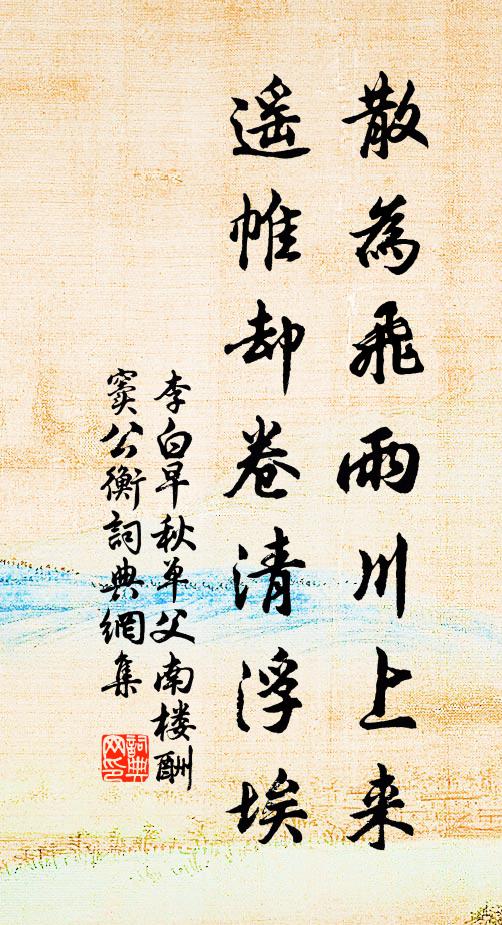 散為飛雨川上来
遥帷却卷清浮埃
李白早秋单父南楼酬
窦公衡詞典網集
詞典
网印